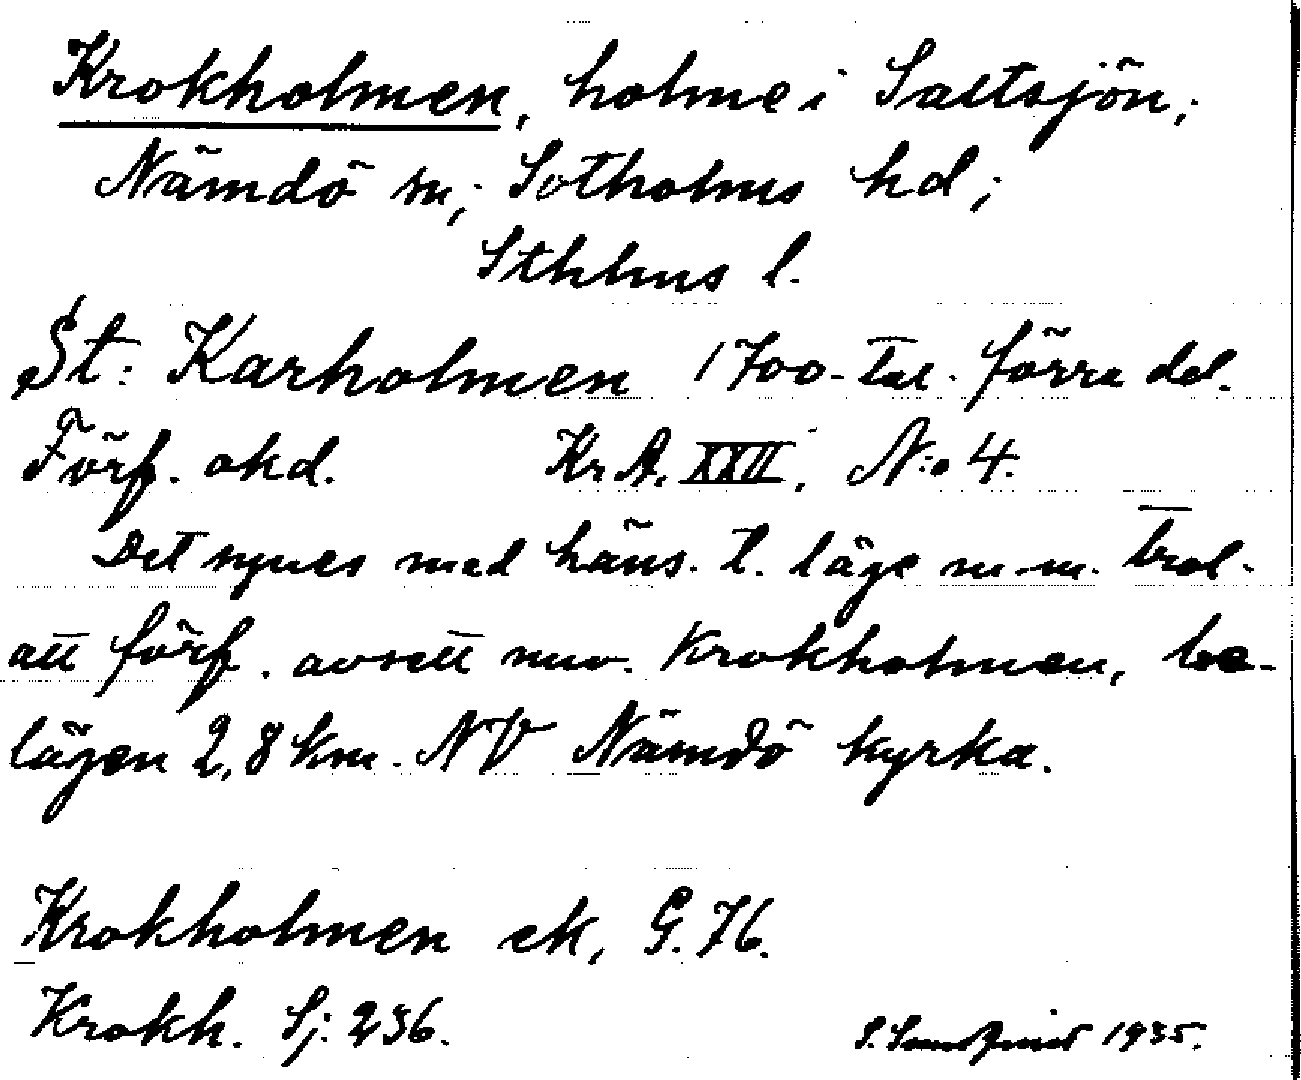 Krokholmen, holme i Saltsjön;
Nämdö sn; Sotholms hd;
Sthlms l.
St: Karholmen 1700-tal. förra del.
Förf. okd. Kr A. XXII. N:o 4.
Det synes med häns. t. läge m.m. trol.
att förf. avsett nuv. Krokholmen, be-
lägen 2,8 km. NV Nämdö kyrka.
Krokholmen ek, G. 76.
Krokh. Sj: 236.
1935.